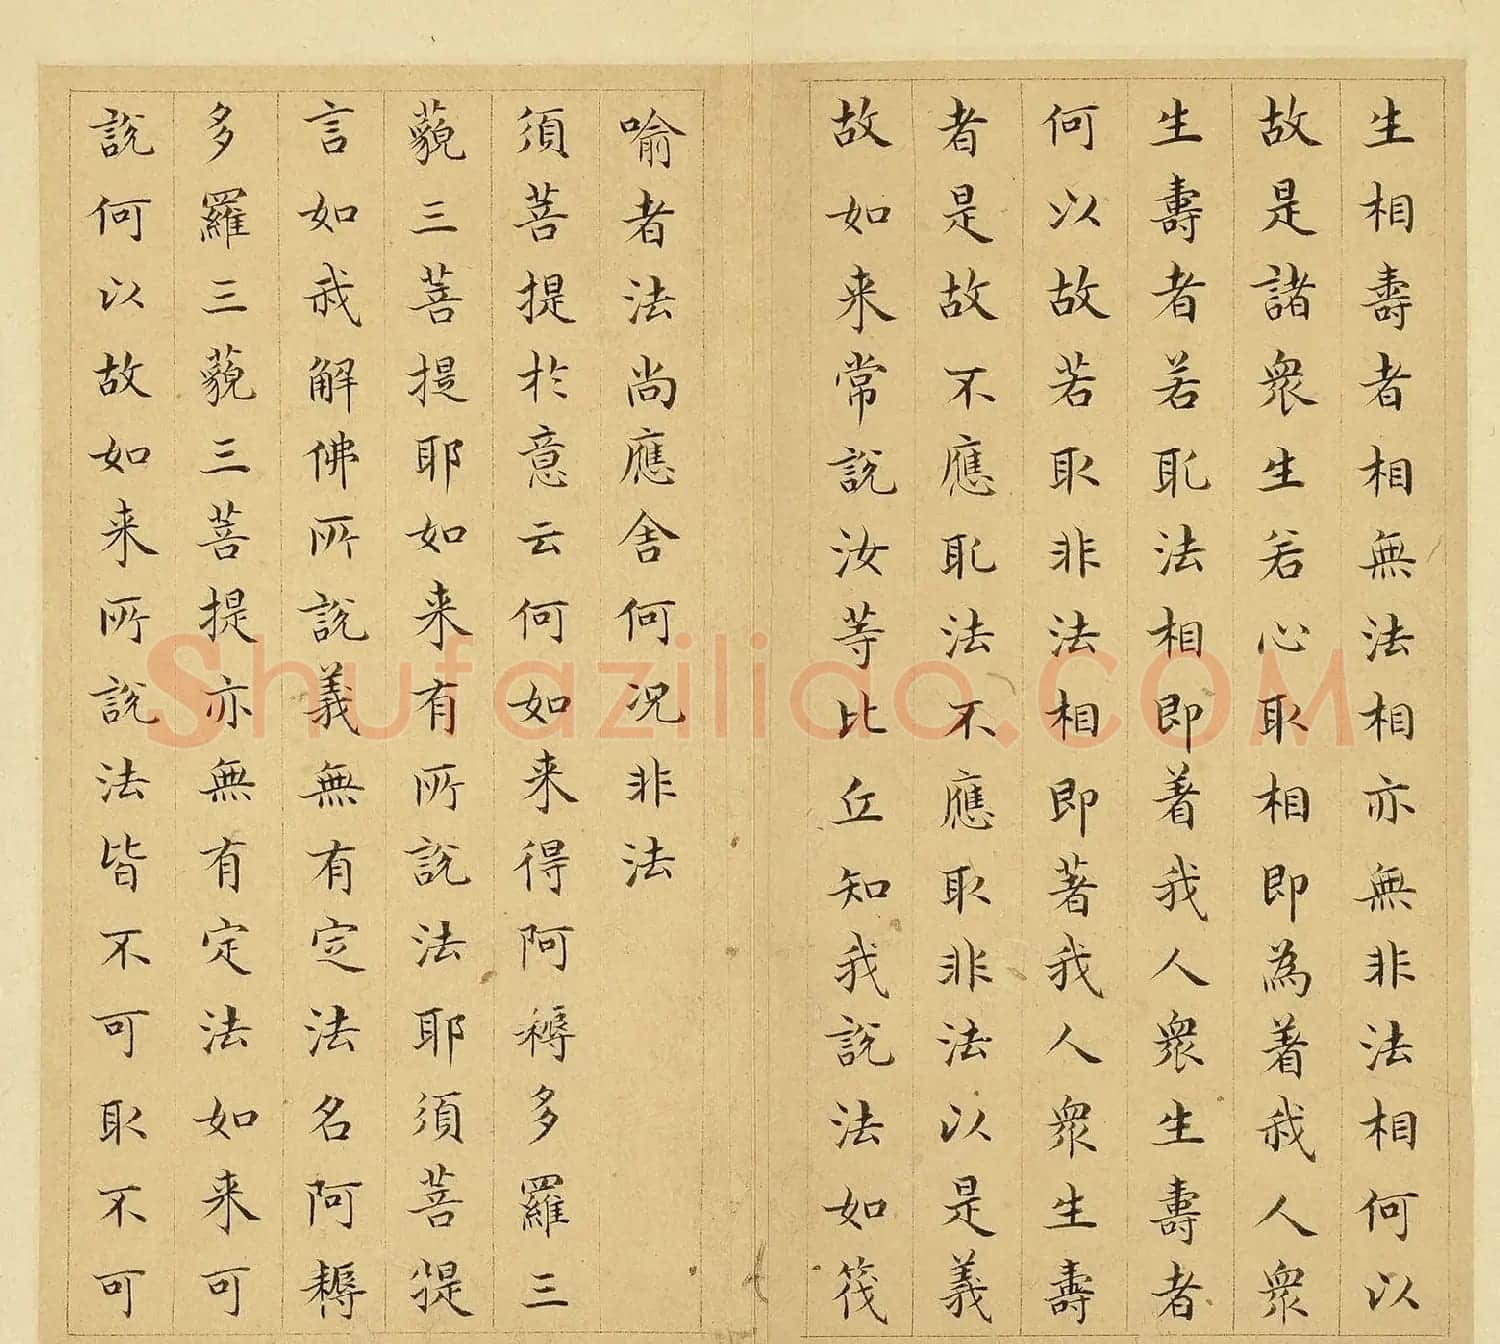 生相壽者相無法相亦無非法相何以
故是諸衆生若心取相即為著我人衆
生壽者若取法相即著我人衆生壽者
何以故若取非法相即著我人衆生壽
者是故不應取法不應取非法以是義
故如来常說汝等比丘知我說法如筏
喻者法尚應舍何况非法
須菩提於意云何如来得阿耨多羅三
藐三菩提耶如来有所說法耶須菩提
言如我解佛所說義無有定法名阿耨
多羅三藐三菩提亦無有定法如来可
說何以故如来所說法皆不可取不可
Shufaziliao.COM